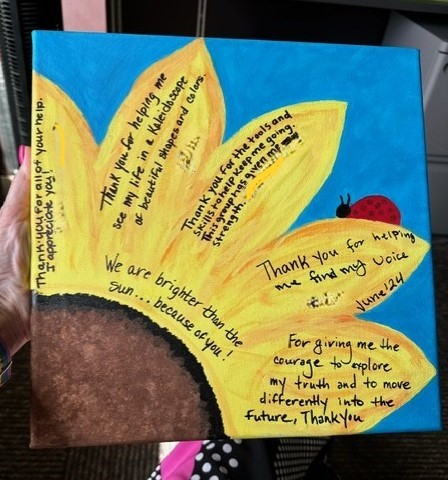 Thank you for all of your help.
I appreciate you!
Thank you for helping me
see my life in a Kaleidoscope
of beautiful shapes and colors.
Thank you for the tools and
skills to help keep me going.
This group has given me
strength.
Thank you for helping
me find my voice
June '24
We are brighter than the
sun... because of you!
For giving me the
courage to explore
my truth and to move
differently into the
future, Thank You